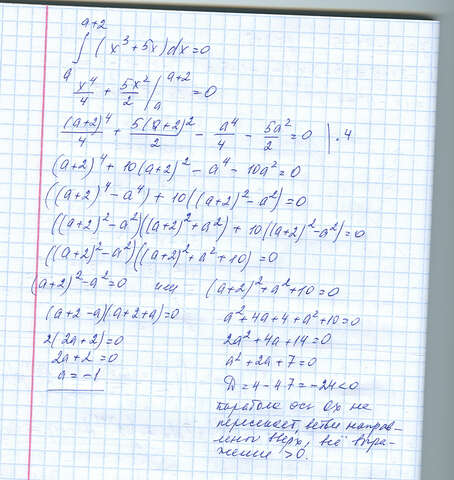 a+2
∫ (x³ + 5x)dx = 0
a
x⁴/4 + 5x²/2 |ₐᵃ⁺² = 0
(a+2)⁴/4 + 5(a+2)²/2 − a⁴/4 − 5a²/2 = 0 | · 4
(a+2)⁴ + 10(a+2)² − a⁴ − 10a² = 0
((a+2)⁴ − a⁴) + 10((a+2)² − a²) = 0
((a+2)² − a²)((a+2)² + a²) + 10((a+2)² − a²) = 0
((a+2)² − a²)((a+2)² + a² + 10) = 0
(a+2)² − a² = 0 или (a+2)² + a² + 10 = 0
(a+2−a)(a+2+a) = 0
2(2a+2) = 0
2a+2 = 0
a = −1
a² + 4a + 4 + a² + 10 = 0
2a² + 4a + 14 = 0
a² + 2a + 7 = 0
D = 4 − 4·7 = −24 < 0
парабола ось Ox не
пересекает, ветви направ-
лены вверх, всё выра-
жение > 0.